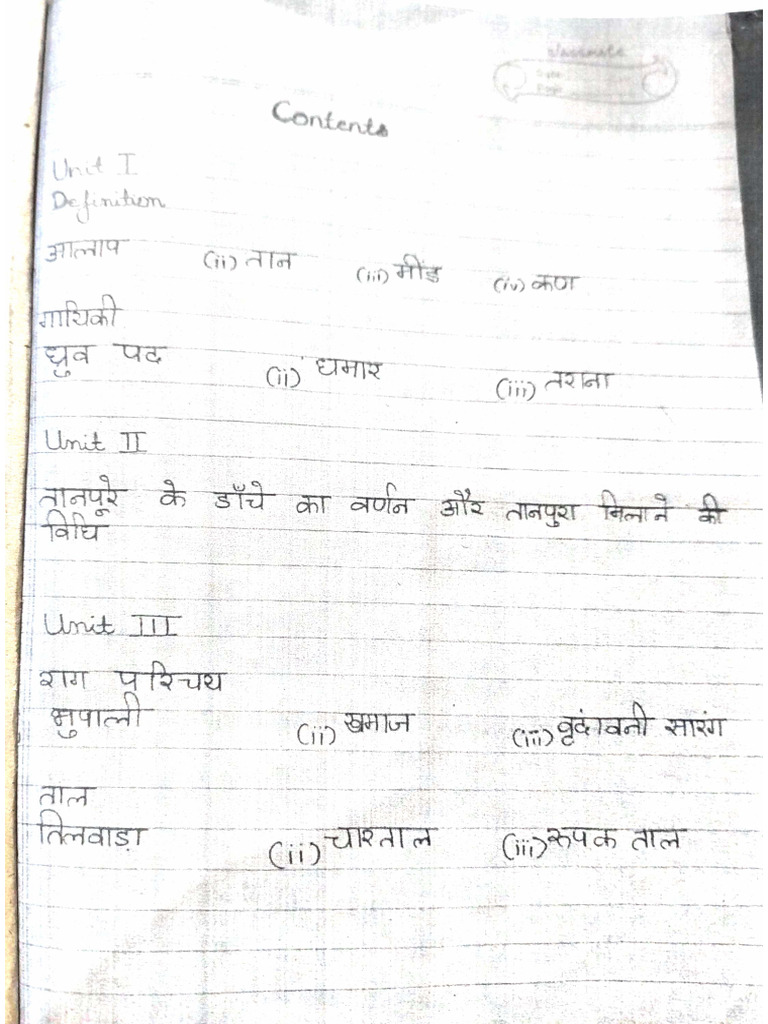 Contents
Unit I
Definition
आलाप (ii) तान (iii) मींड (iv) कण
गायिकी
ध्रुव पद (ii) धमार (iii) तराना
Unit II
तानपूरे के डाँचे का वर्णन और तानपुरा मिलाने की
विधि
Unit III
राग परिचय
भुपाली (ii) खमाज (iii) वृदांवनी सारंग
ताल
तिलवाड़ा (ii) चारताल (iii) रूपक ताल